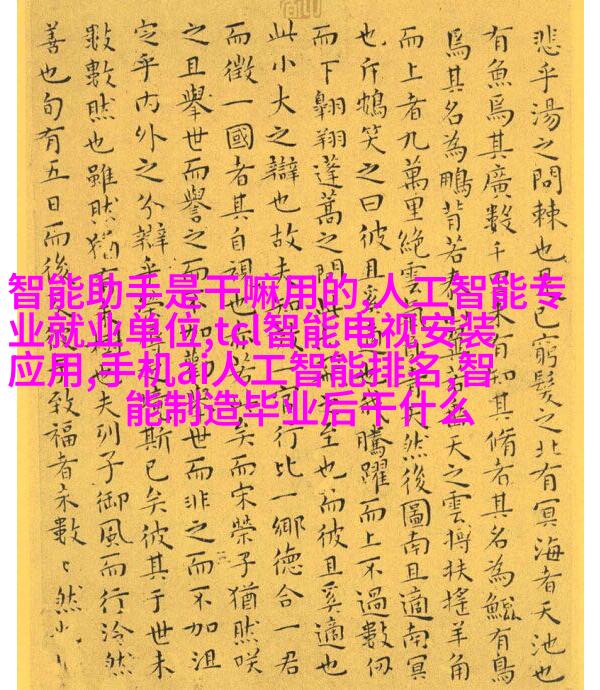 智能助手是干嘛用的,人工智能专
业就业单位,tcl智能电视安装
应用,手机ai人工智能排名,智
能制造毕业后干什么
悲乎湯之問棘也是已窮髮之北有冥海者天池也
有魚焉其廣數千里未有知其脩者其名為鯤有鳥
焉其名為鵬背若泰山若天之雲摶扶搖羊角
而上者九萬里絕雲氣青天然後圖南且適南冥
也斥鴳笑之曰彼且奚適也騰躍而上不過數仞
而下翱翔蓬蒿之間此至也而彼且奚適也
此小大之辯也故夫一官行比一鄉德合一君
而徵一國者其自視也亦若矣而宋榮子猶然咲
之且舉世而譽之而不加而非之而不加沮
定乎內外之分辯乎榮斯已矣彼其于世未
數數然也雖然猶有未也夫列子御風而行泠然
善也旬有五日而後致福者未數〻然